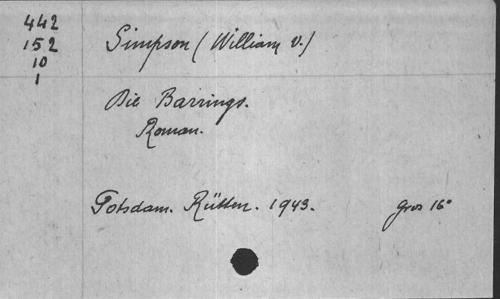 442
152
10
1
Simpson (William v.)
Die Barrings.
Roman.
Potsdam. Rütten. 1943. gros 16°